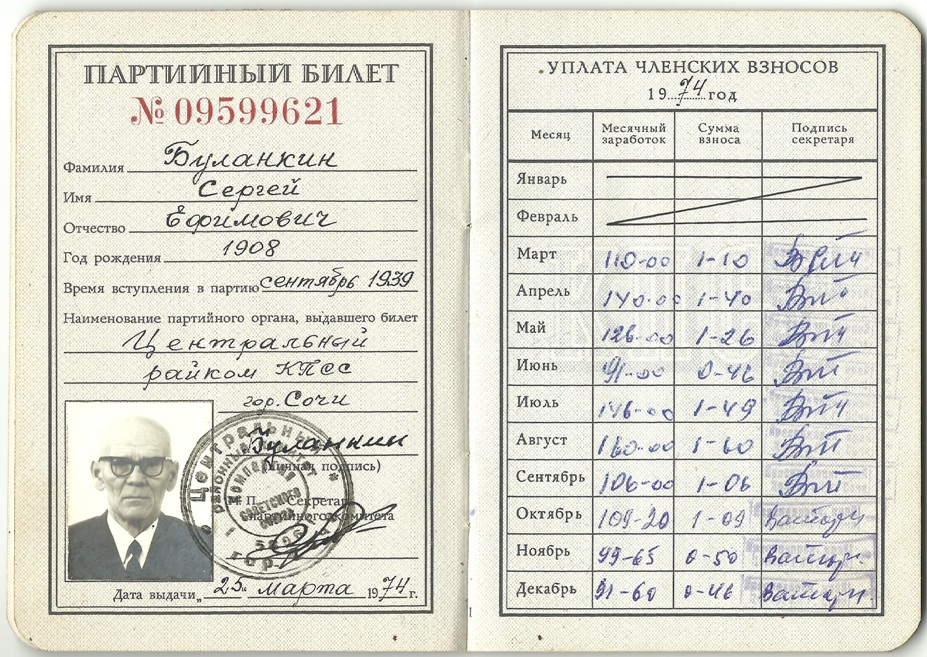 ПАРТИЙНЫЙ БИЛЕТ
№ 09599621
Фамилия Буланкин
Имя Сергей
Отчество Ефимович
Год рождения 1908
Время вступления в партию сентябрь 1939
Наименование партийного органа, выдавшего билет
Центральный
райком КПСС
гор. Сочи
Буланкин
(личная подпись)
М. П. Секретарь
партийного комитета
Дата выдачи „25" марта 1974 г.
УПЛАТА ЧЛЕНСКИХ ВЗНОСОВ
1974 год
Месяц Месячный заработок Сумма взноса Подпись секретаря
Январь
Февраль
Март 110-00 1-10
Апрель 140-00 1-40
Май 126-00 1-26
Июнь 91-00 0-46
Июль 146-00 1-49
Август 160-00 1-60
Сентябрь 106-00 1-06
Октябрь 109-20 1-09
Ноябрь 99-65 0-50
Декабрь 91-60 0-46
1